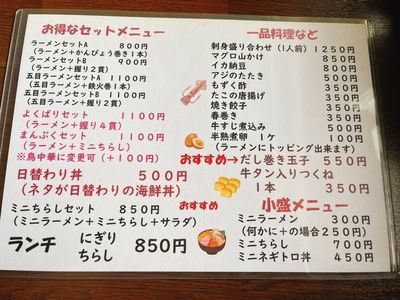 お得なセットメニュー
ラーメンセットA 800円
(ラーメン+かんぴょう巻き1本)
ラーメンセットB 900円
(ラーメン+握り2貫)
五目ラーメンセットA 1100円
(ラーメン+鉄火巻1本)
五目ラーメンセットB 1100円
(ラーメン+握り2貫)
よくばりセット 1100円
(ラーメン+握り4貫)
まんぷくセット 1100円
(ラーメン+ミニちらし)
※鳥中華に変更可(+100円)
日替わり丼 500円
(ネタが日替わりの海鮮丼)
おすすめ
ミニちらしセット 850円
(ミニラーメン+ミニちらし+サラダ)
ランチ にぎり ちらし 850円
一品料理など
刺身盛り合わせ(1人前) 1250円
マグロ山かけ
イカ納豆
アジのたたき
もずく酢
たこの唐揚げ
焼き餃子
春巻き
牛すじ煮込み
半熟煮卵 1ケ
(ラーメンにトッピング出来ます)
おすすめ→だし巻き玉子 550円
牛タン入りつくね
1本 350円
小盛メニュー
ミニラーメン 300円
(何かに+の場合250円)
ミニちらし 700円
ミニネギトロ丼 450円